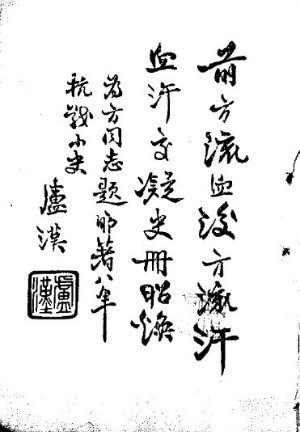 前方流血後方流汗
血汗交凝史冊昭煥
為方同志題所著八年
抗戰小史
盧漢
盧漢